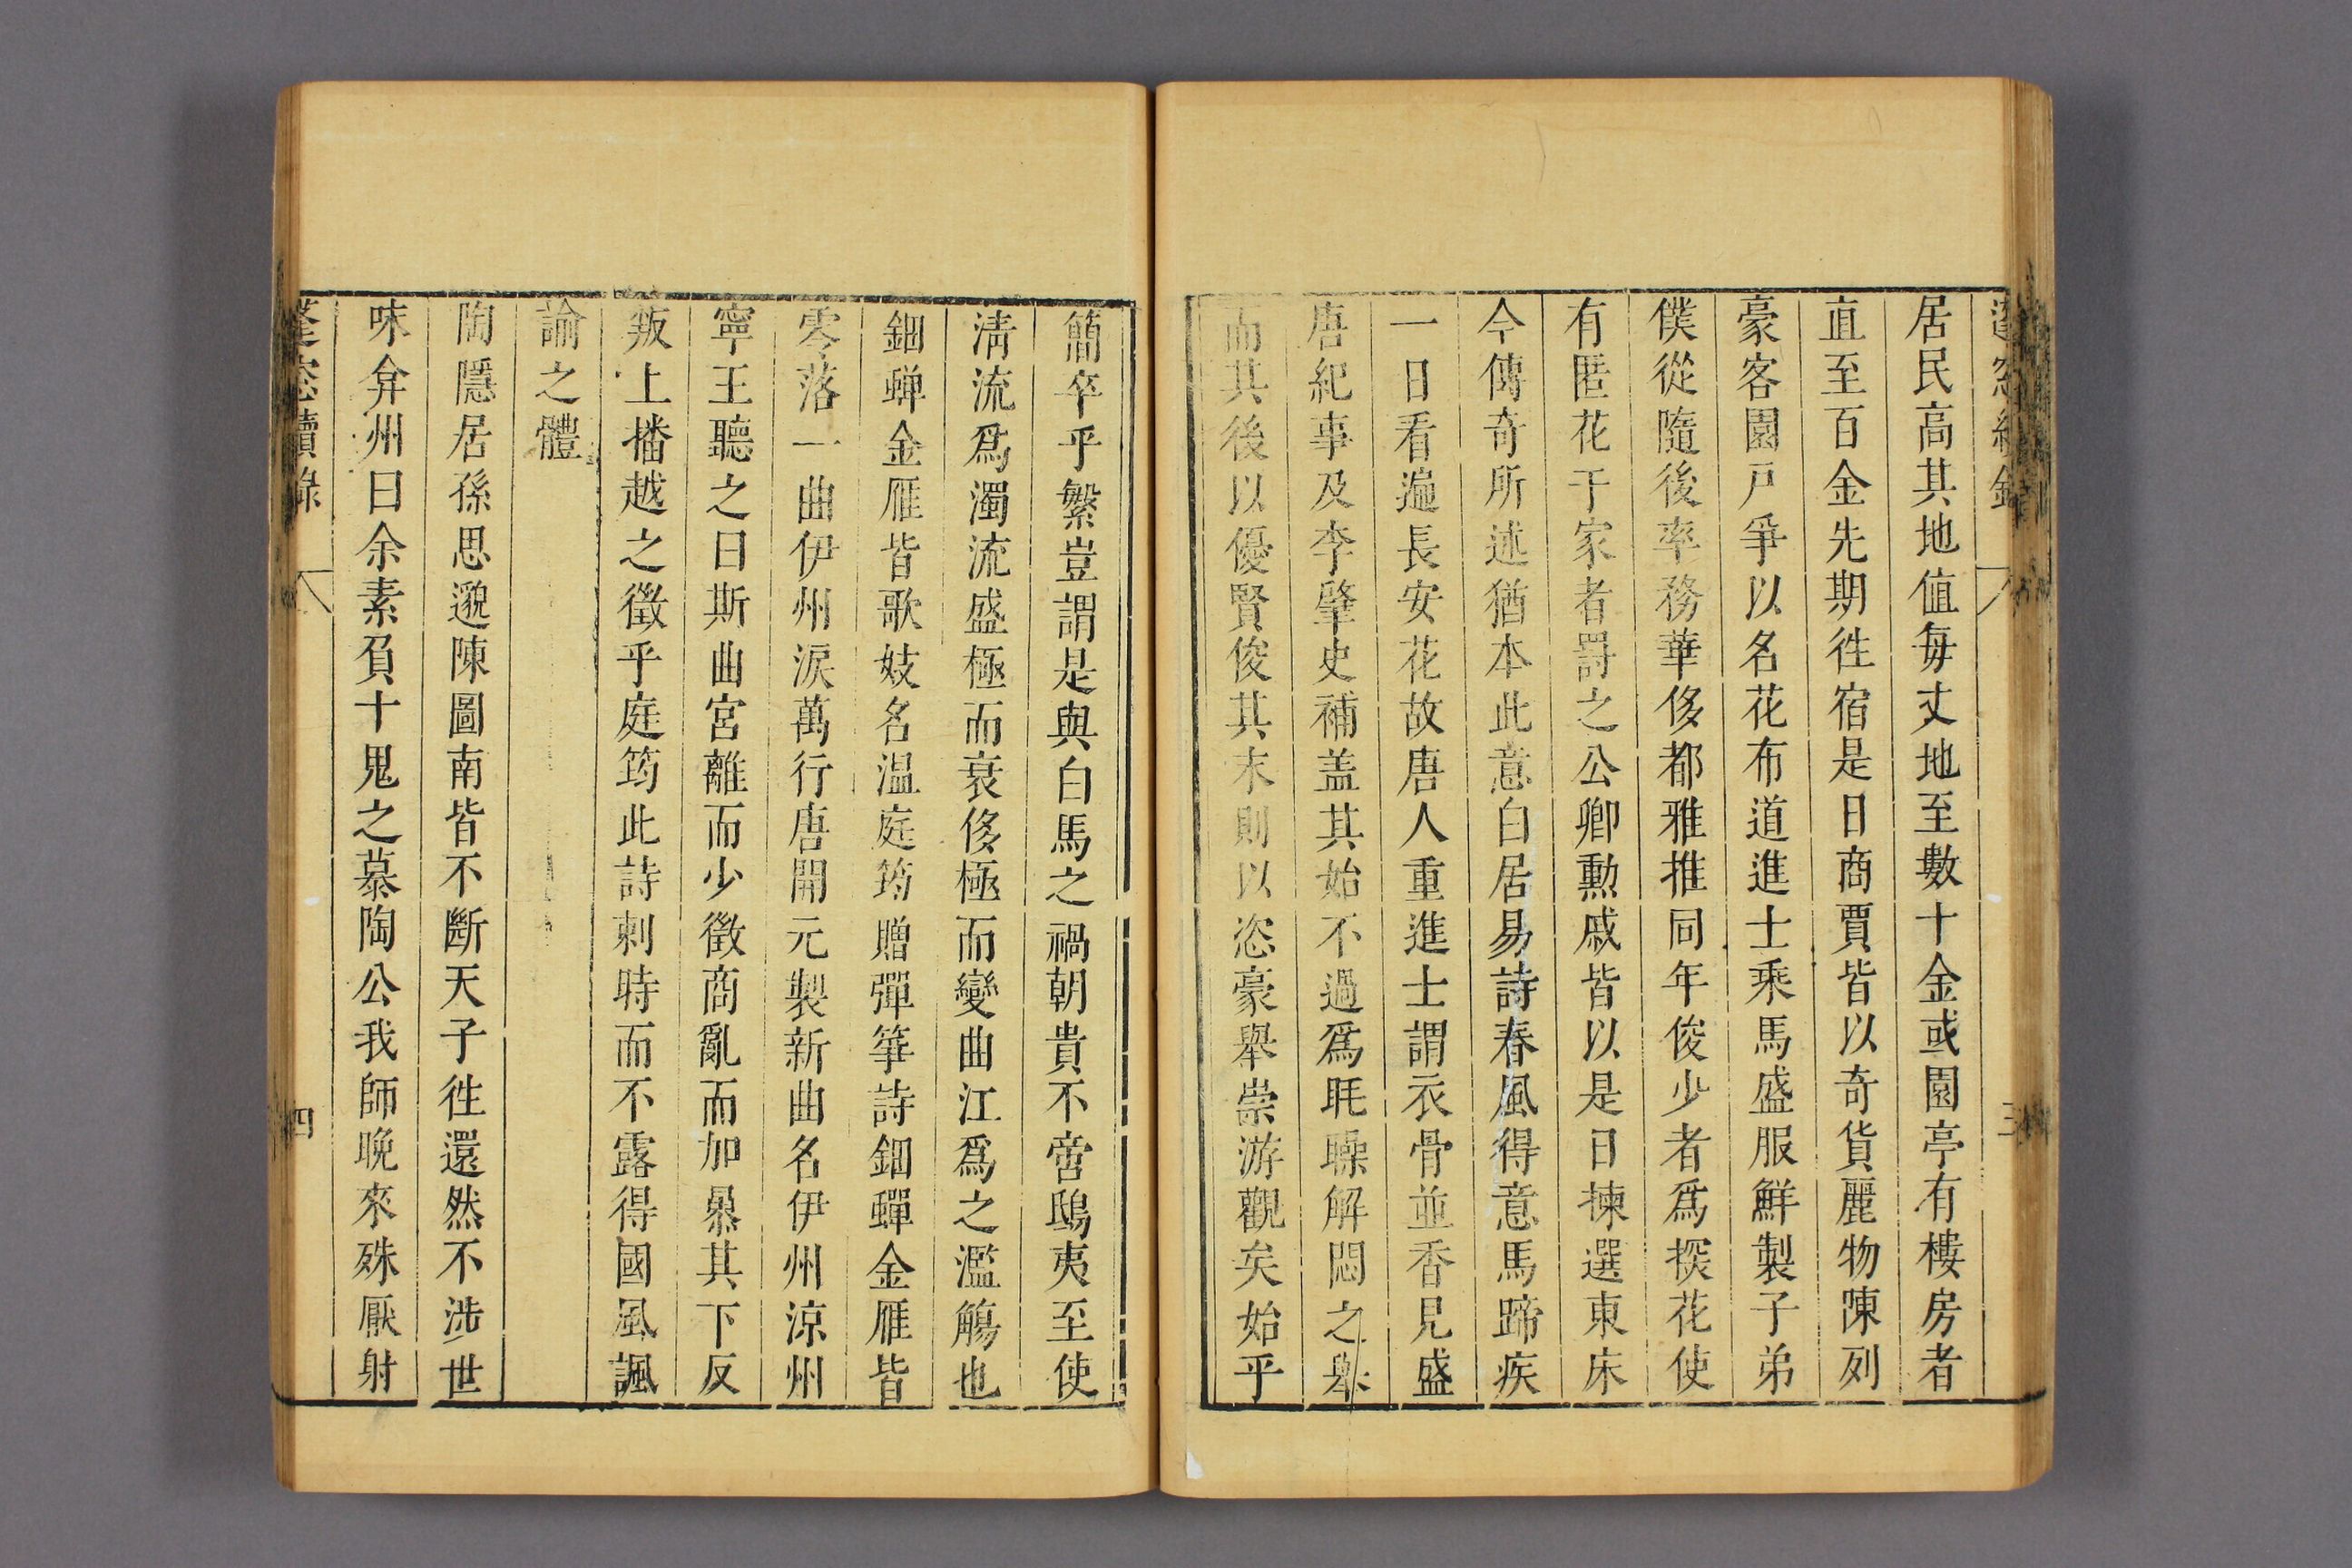 蓬窓續錄
三
居民高其地値每丈地至數十金或園亭有樓房者
直至百金先期徃宿是日商賈皆以奇貨麗物陳列
豪客園戸爭以名花布道進士乘馬盛服鮮製子弟
僕從隨後率務華侈都雅推同年俊少者爲探花使
有匿花于家者罸之公卿勳戚皆以是日揀選東床
今傳奇所述猶本此意白居易詩春風得意馬蹄疾
一日看遍長安花故唐人重進士謂衣骨並香見盛
唐紀事及李肇史補盖其始不過爲眊矂解悶之舉
而其後以優賢俊其末則以恣豪舉崇游觀矣始乎
簡卒乎繁豈謂是與白馬之禍朝貴不啻鴟夷至使
淸流爲濁流盛極而衰侈極而變曲江爲之濫觴也
鈿蟬金雁皆歌妓名温庭筠贈彈箏詩鈿蟬金雁皆
零落一曲伊州淚萬行唐開元製新曲名伊州涼州
寧王聽之曰斯曲宮離而少徵商亂而加㬥其下反
叛上播越之徵乎庭筠此詩刺時而不露得國風諷
諭之體
陶隱居孫思邈陳圖南皆不斷天子徃還然不涉世
味弇州曰余素負十鬼之慕陶公我師晚來殊厭射
蓬窓續錄
四